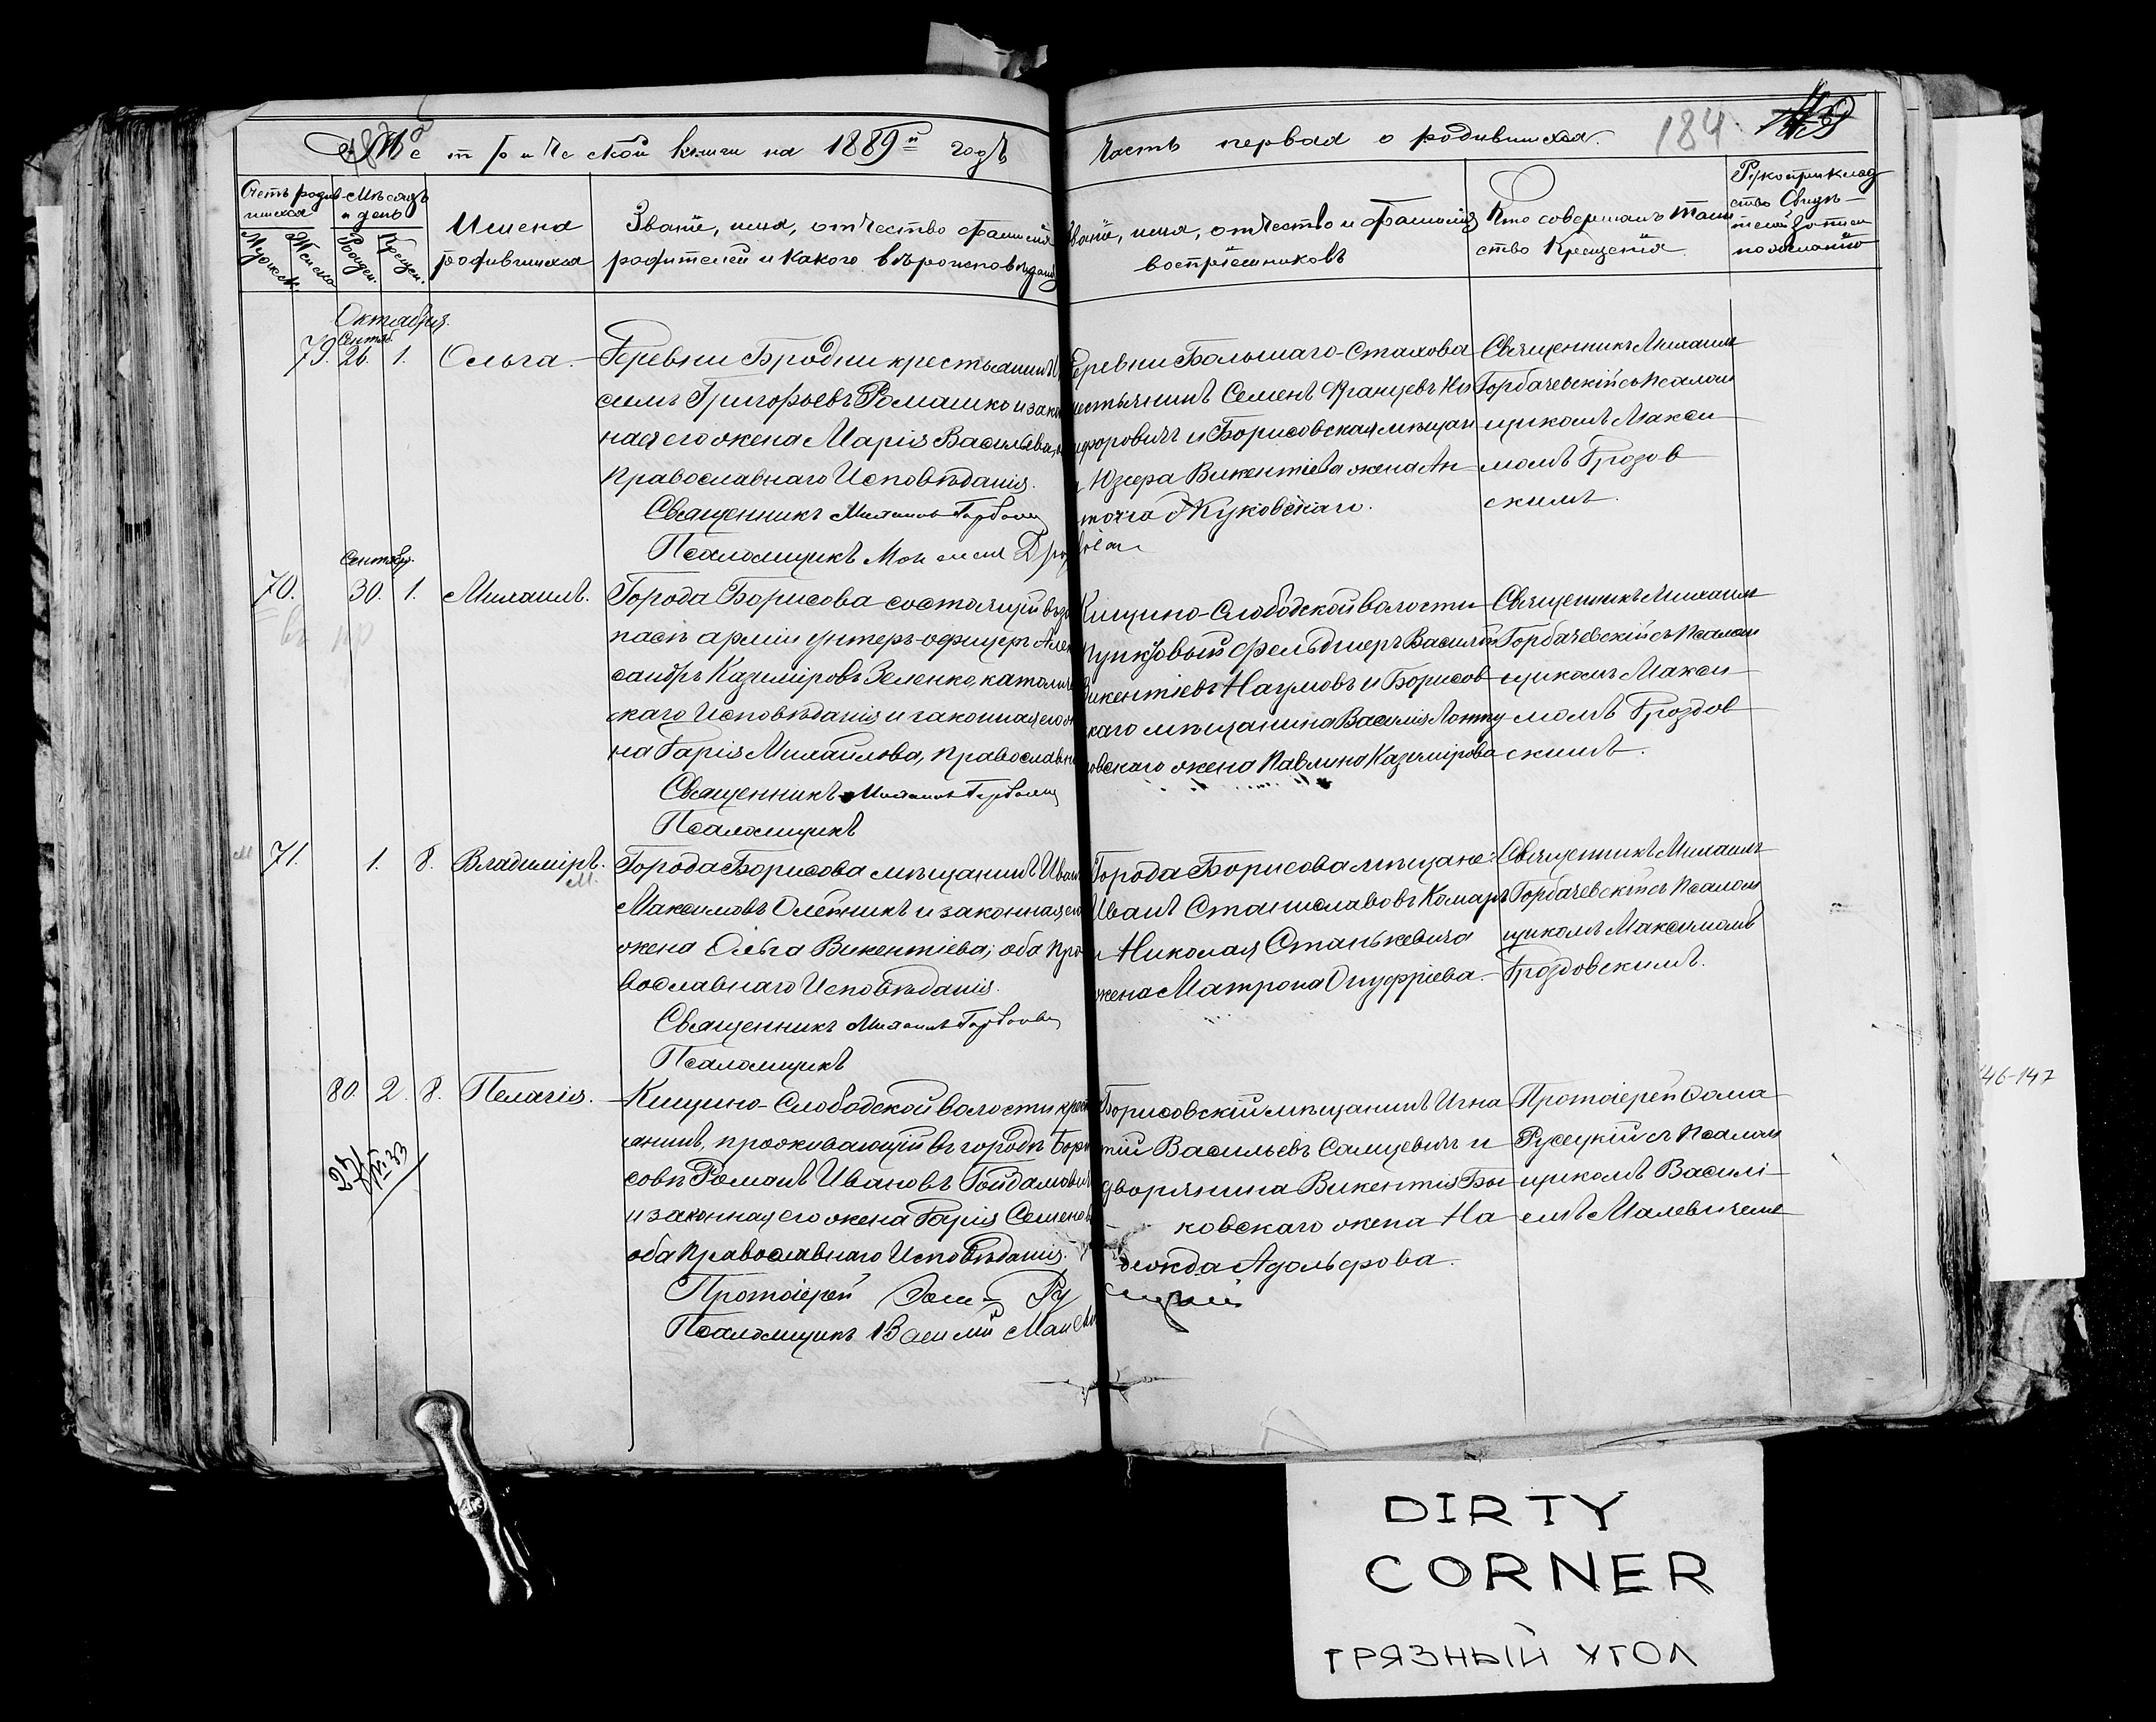 Метрической книги на 1889й годъ
Часть первая о родившихся.
184.
Счетъ родившихся
Мѣсяцъ и день
Имена родившихся
Званіе, имя, отчество фамилія родителей и какого вѣроисповѣданія
Званіе, имя, отчество и фамилія воспріемниковъ
Кто совершалъ таинство Крещенія
Рукоприкладство свидѣтелей записи по желанію
Мужеск. Женско. Рожден. Крещен.
Октября.
Сентяб.
79. 26. 1. Ольга.
Деревни Бродни крестьянинъ
симъ Григорьевъ Ромашко и закон
ная его жена Марія Васильева,
Православнаго Исповѣданія.
Священникъ Михаилъ Горбаче
Псаломщикъ
Деревни Большаго-Стахова
рестьянинъ Семенъ Францевъ Ни
цифоровичъ и Борисовская мѣщан
Юзефа Викентіева жена Ан
тона Жуковскаго.
Священникъ Михаилъ
Горбачевскій съ Псалом
щикомъ Макси
момъ Грозов
скимъ.
Сентябр.
70. 30. 1. Михаилъ.
Города Борисова состоящій въ за
пасѣ арміи унтеръ-офицеръ Алек
сандръ Казиміровъ Зеленко, католич
скаго Исповѣданія и законная его же
на Дарія Михайлова, православн
Священникъ Михаилъ Горбачев
Псаломщикъ
Кищино-Слободской волости
пунктовый фельдшеръ Василій
Викентіевъ Наумовъ и Борисов
скаго мѣщанина Василія
овскаго жена Павлина Казимірова
Священникъ Михаилъ
Горбачевскій съ Псалом
щикомъ Макси
момъ Гроздов
скимъ.
71. 1. 8. Владиміръ.
М.
Города Борисова мѣщанинъ Иванъ
Максимовъ Олейникъ и законная его
жена Ольга Викентіева; оба Пра
вославнаго Исповѣданія.
Священникъ Михаилъ Горбачев
Псаломщикъ
Города Борисова мѣщане:
Иванъ Станиславовъ Комаръ
и Николая Станькевича
жена Матрона Онуфріева.
Священникъ Михаилъ
Горбачевскій съ Псалом
щикомъ Максимомъ
Гроздовскимъ.
80. 2. 8. Пелагія.
Кищино-Слободской волости крест
янинъ, проживающій въ городѣ Бори
совѣ Романъ Ивановъ Гайдамовичъ
и законная его жена Дарія Семенова
оба Православнаго Исповѣданія.
Протоіерей Фома Ру сецкій
Псаломщикъ Василій Малеви
Борисовскій мѣщанинъ Игна
тій Васильевъ Салцевичъ и
дворянина Викентія Бы
ковскаго жена На
дежда Адольфова.
Протоіерей Фома
Русецкій съ Псалом
щикомъ Василі
емъ Малевичемъ
46-147
DIRTY
CORNER
ГРЯЗНЫЙ УГОЛ